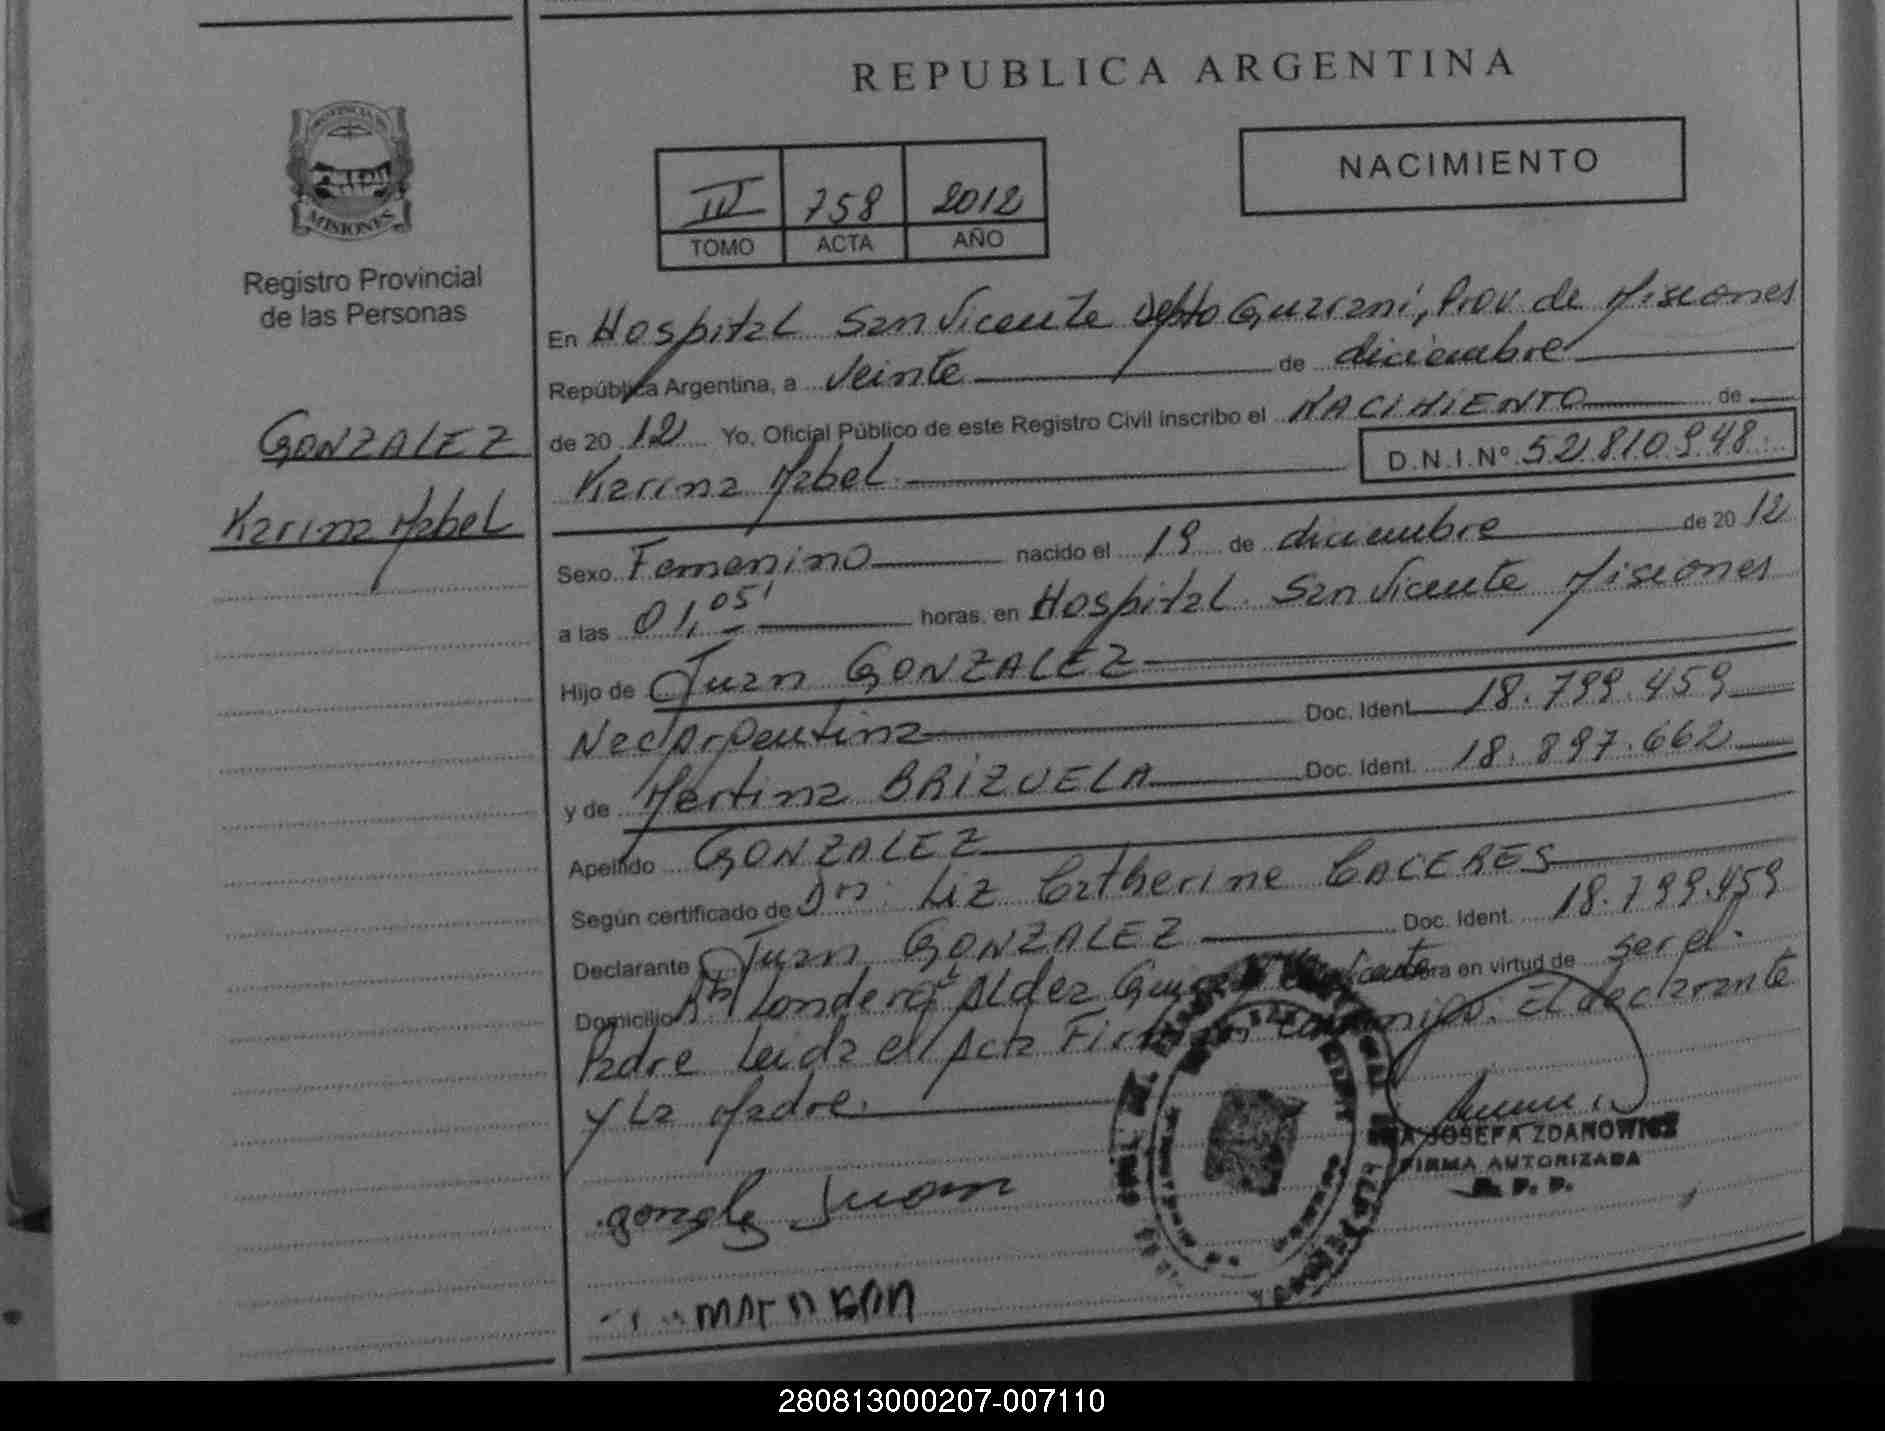 REPUBLICA ARGENTINA
PROVINCIA DE
MISIONES
Registro Provincial
de las Personas
GONZALEZ
Karina Mabel
IV 758 2012
TOMO ACTA AÑO
NACIMIENTO
En Hospital San Vicente Depto Guarani, Prov de Misiones
República Argentina, a Veinte de diciembre
de 20 12 Yo, Oficial Público de este Registro Civil inscribo el NACIMIENTO de
Karina Mabel D.N.I.Nº 52.810.948.
Sexo Femenino nacido el 19 de diciembre de 20 12
a las 01,05' horas, en Hospital San Vicente Misiones
Hijo de Juan GONZALEZ
Nac Argentina Doc. Ident. 18.799.459
y de Martina BRIZUELA Doc. Ident. 18.897.662
Apellido GONZALEZ
Según certificado de Dra. Liz Catherine CACERES
Declarante Juan GONZALEZ Doc. Ident. 18.799.459
Domicilio Londero Aldea en virtud de ser el
Padre Leida el Acta conmigo. El declarante
y La Madre.
gonzalez Juan
JOSEFA ZDANOWICZ
FIRMA AUTORIZADA
R. P. P.
280813000207-007110